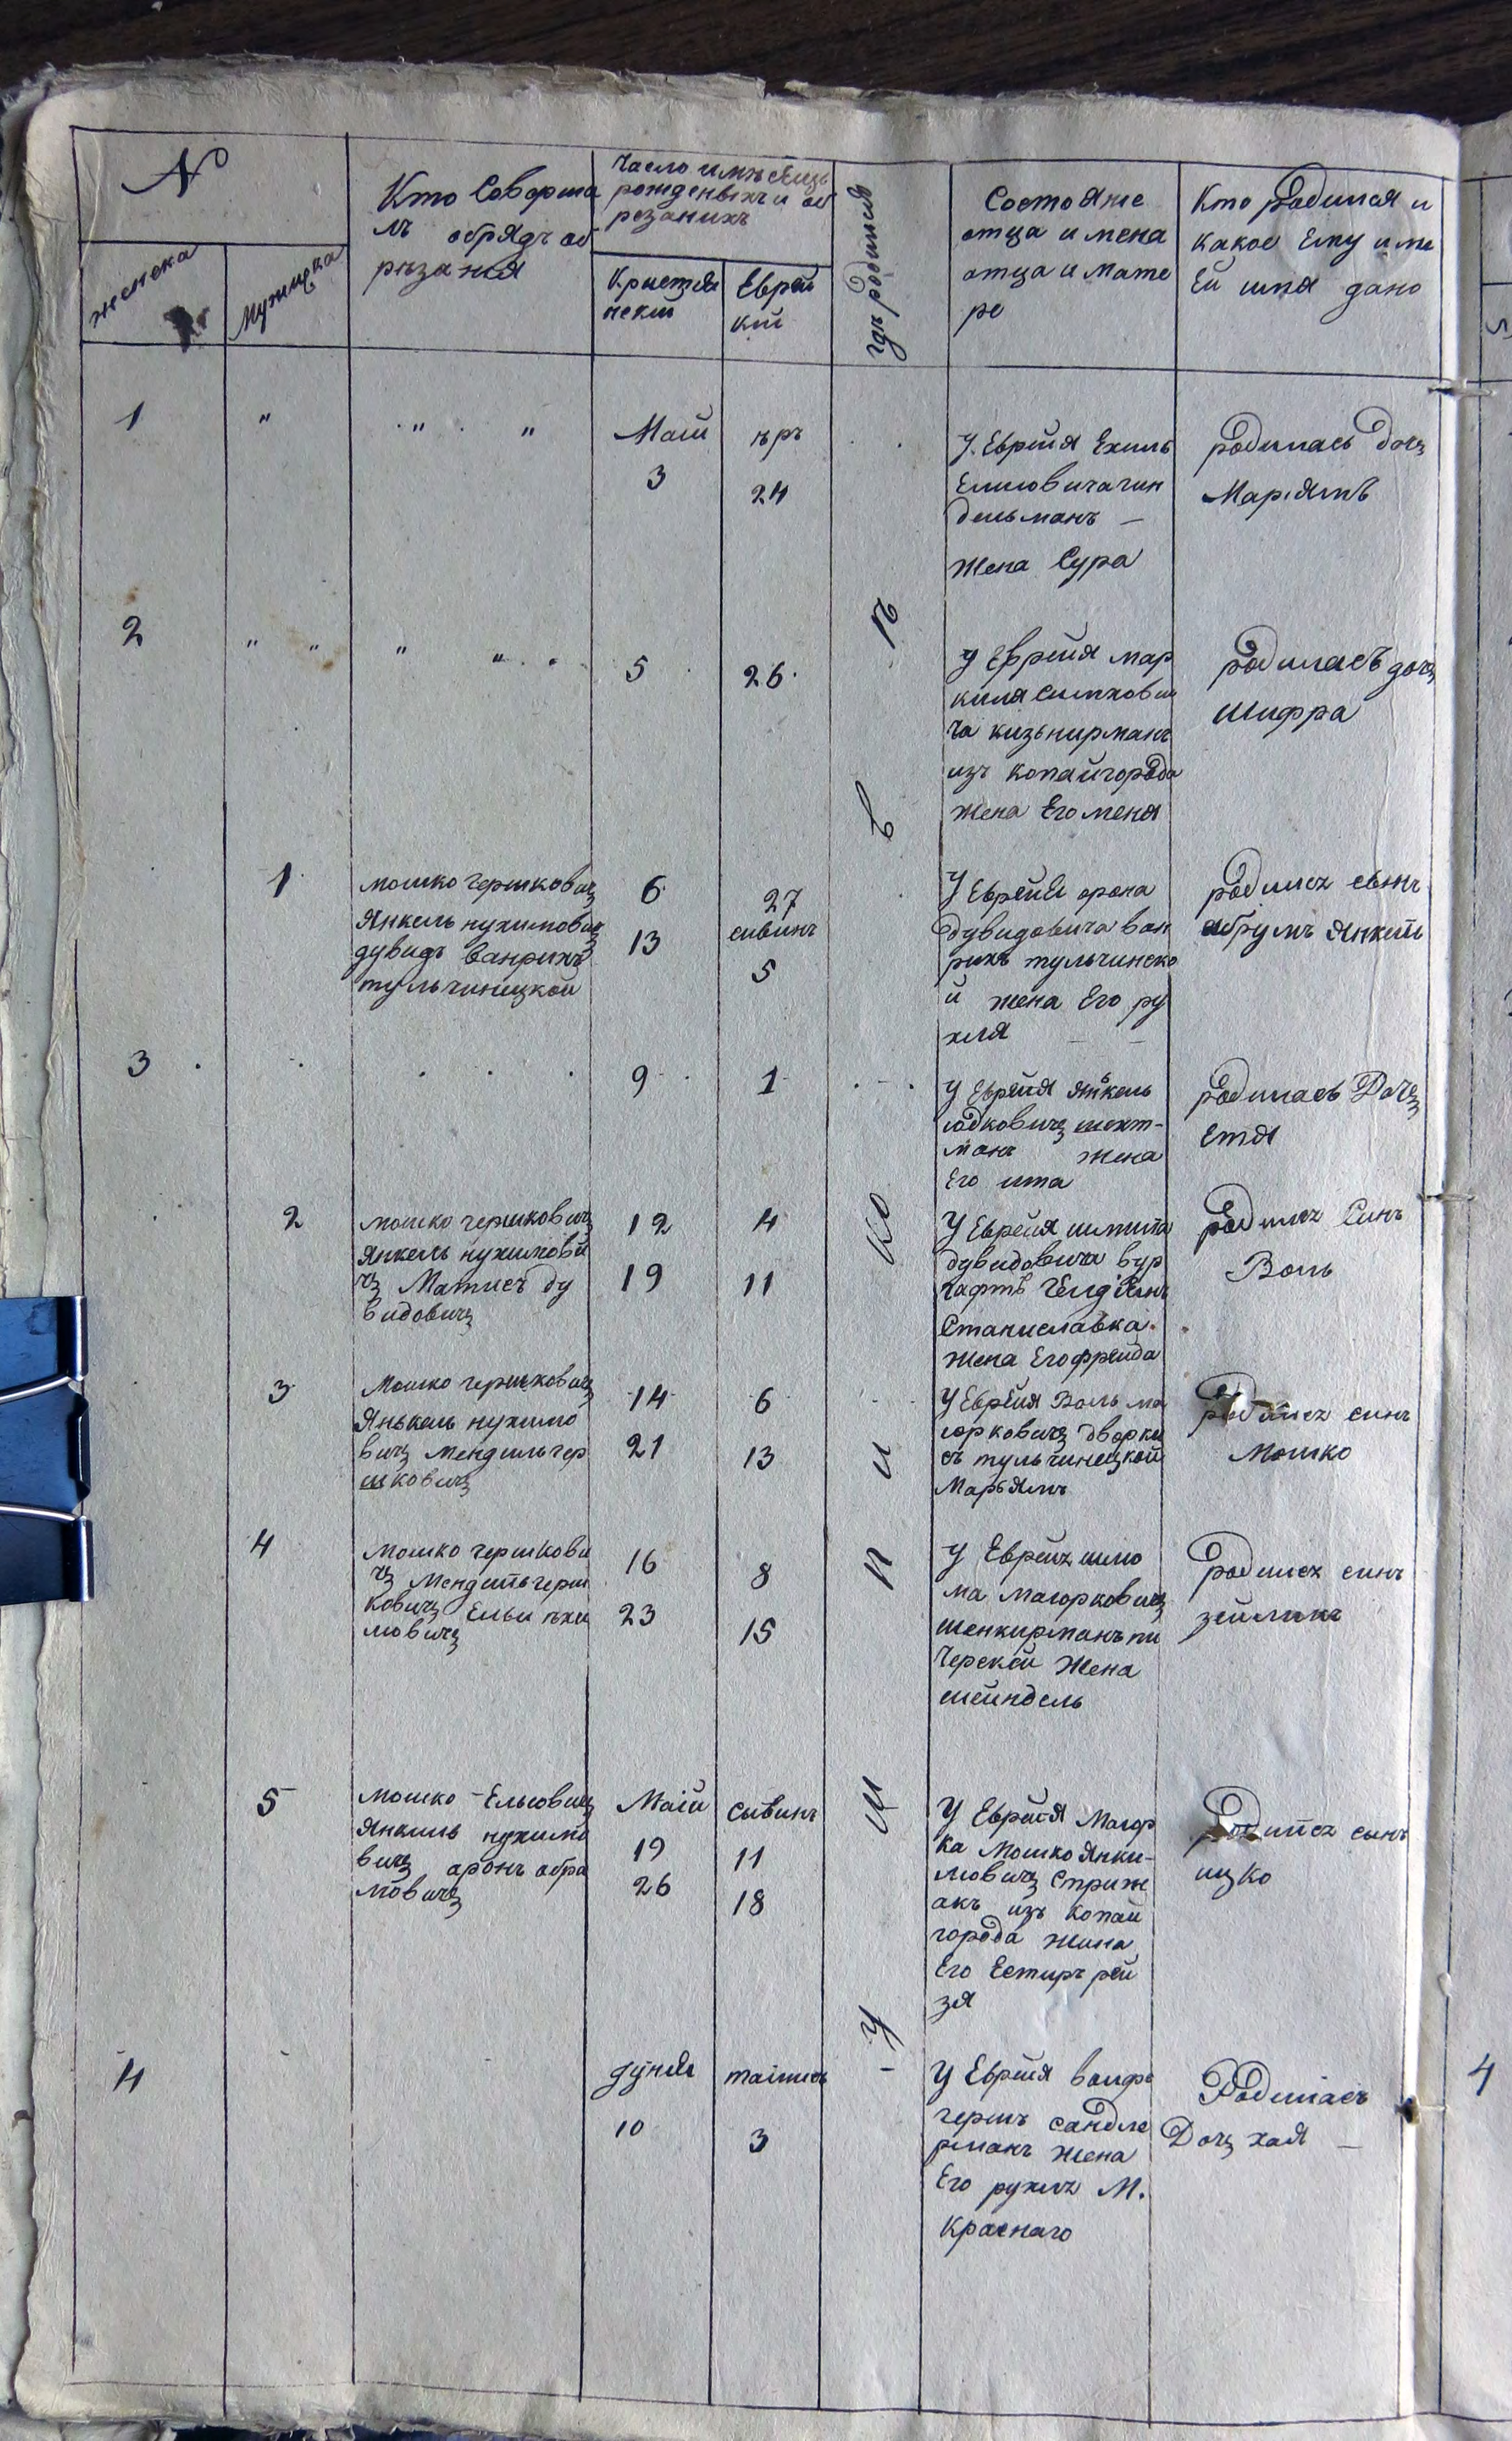 N
женска
мужиска
Кто Соверша
лъ обрядъ об
резания
Число и месецъ
рожденыхъ и об
резанихъ
Кристия
нский
Еврей
кий
где родился
Состояние
отца имена
отца и мате
ре
Кто родился и
какое Ему или
Ей имя дано
1 " " " Май ѣръ
3 24
У Еврейя Ехиль
дельманъ —
жена Сура
родилась дочъ
Мариямъ
2 " " " " 5 26
у Еврейя мар
киля Симхови
ча кизънирманъ
изъ копайгорода
жена Его меня
родиласъ дочъ
Шифра
1 мошко гершковичъ
Янкель нухимовичъ
дувидъ ванрихъ
тульчинецкой
6 27
13 сивинъ
5
У Еврейя орона
дувидовича ван
рихъ тульчинско
й жена Его ру
хля
родился сынъ
абрумъ Янкель
3 9 1
У Еврейя Янкель
юдковичъ шехт-
манъ жена
Его ита
родилась Дочъ
Етя
2 мошко гершковичъ
Янкель нухимови
чъ Матисъ ду
видовичъ
12 4
19 11
У Еврейя
дувидовича вур
Станиславка
жена Его фрейда
родился Синъ
Воль
3 Мошко гершковичъ
Янькель нухимо
вичъ мендильгер
шковичъ
14 6
21 13
У Еврейя Воль ма
юрковичъ дворки
съ тульчинецкой
Марьямъ
родился синъ
Мошко
4 мошко гершкови
чъ Мендельгерш
ковичъ
мовичъ
16 8
23 15
У Еврейя шлио
ма маюрковичъ
шенкирманъ пи
черской Жена
шейндель
родился синъ
зейликъ
5 мошко Ельовичъ
Янкиль нухимо
вичъ аронъ абра
мовичъ
Май Сывинъ
19 11
26 18
У Еврейя Маюр
ка Мошко Янки-
лювичъ Стриж
акъ изъ копай
города жина
Его Естиръ рей
зя
Родился сынъ
ицко
4 Дуния таимисъ
10 3
У Еврейя вольф
гершъ сандле
рманъ жена
Его рухля М.
Краснаго
Родилась
Дочъ хая —
У Ш П И КО В Ѣ
4